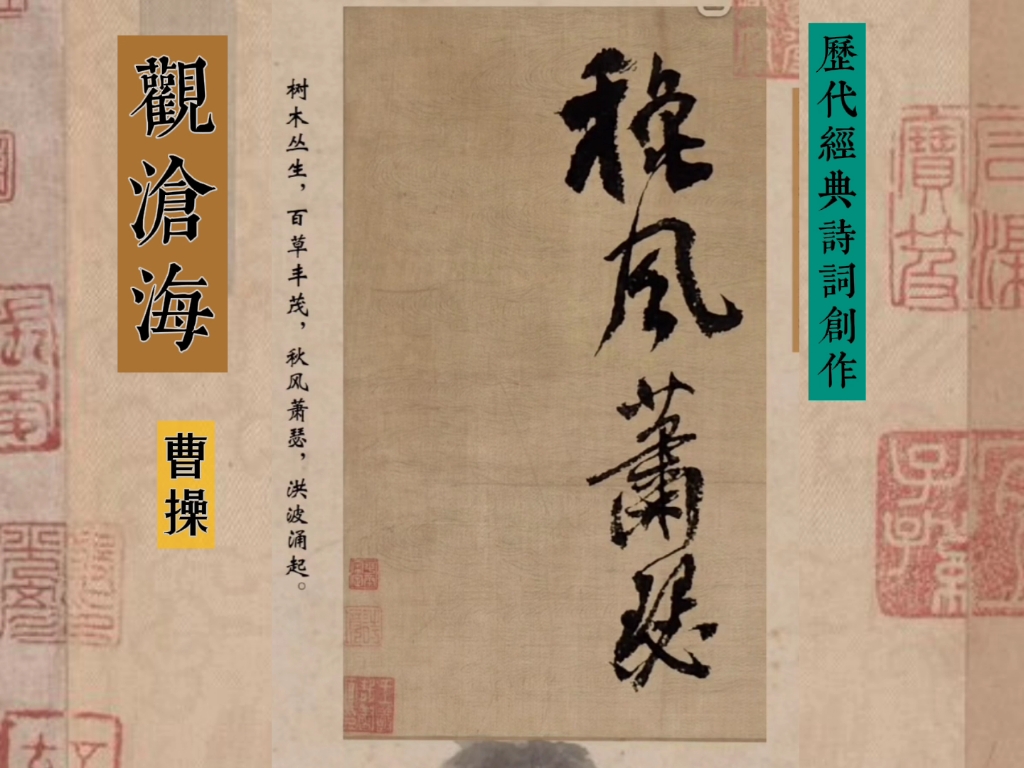 歷代經典詩詞創作
穐風蕭瑟
树木丛生，百草丰茂，秋风萧瑟，洪波涌起。
觀滄海
曹操